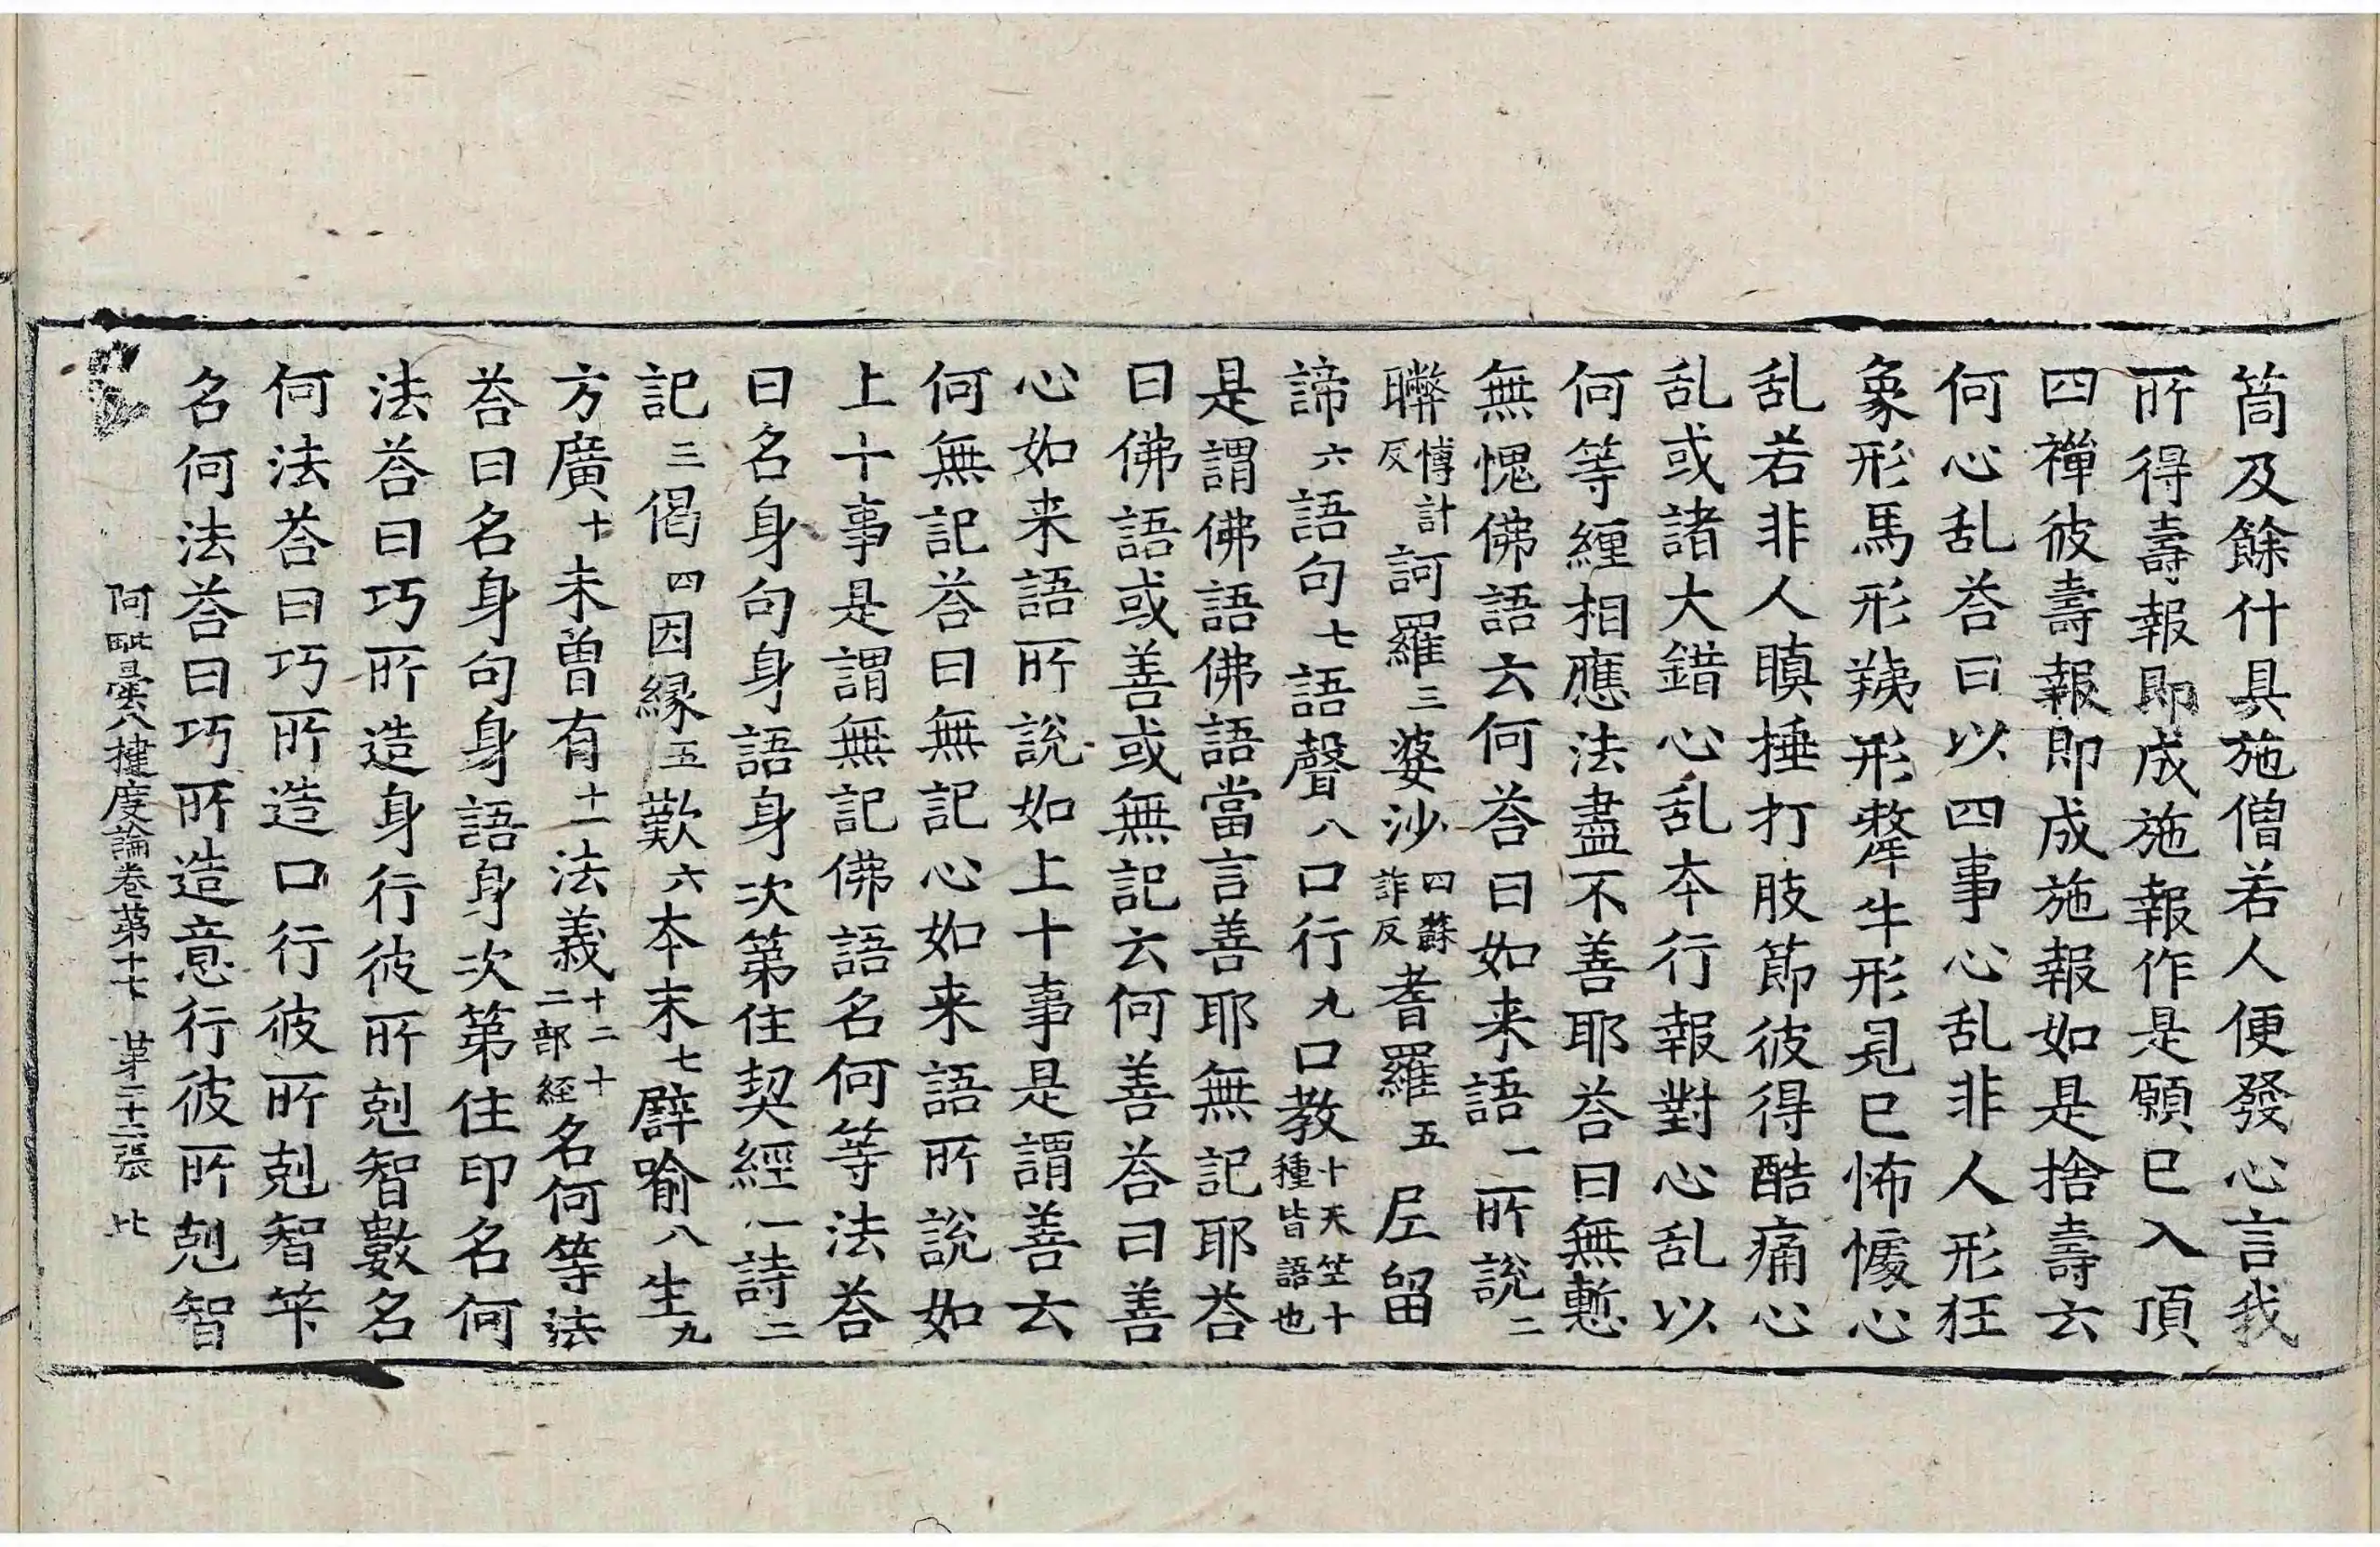 筒及餘什具施僧若人便發心言我
所得壽報即成施報作是願已入頂
四禪彼壽報即成施報如是捨壽云
何心乱荅曰以四事心乱非人形狂
象形馬形羠形犛牛形見已怖懅心
乱若非人瞋捶打肢節彼得酷痛心
乱或諸大錯心乱本行報對心乱以
何等纏相應法盡不善耶荅曰無慙
無愧佛語云何荅曰如来語一所說二
嚩博計反訶羅三婆沙四蘇詐反耆羅五㞐留
諦六語句七語聲八口行九口教十天竺十種皆語也
是謂佛語佛語當言善耶無記耶荅
曰佛語或善或無記云何善荅曰善
心如来語所說如上十事是謂善云
何無記荅曰無記心如来語所說如
上十事是謂無記佛語名何等法荅
曰名身句身語身次第住契經一詩二
記三偈四因縁五歎六本末七譬喻八生九
方廣十未曾有十一法義十二十二部經名何等法
荅曰名身句身語身次第住印名何
法荅曰巧所造身行彼所剋智數名
何法荅曰巧所造口行彼所剋智筭
名何法荅曰巧所造意行彼所剋智
阿毗曇八揵度論卷第十七 第二十二張 比